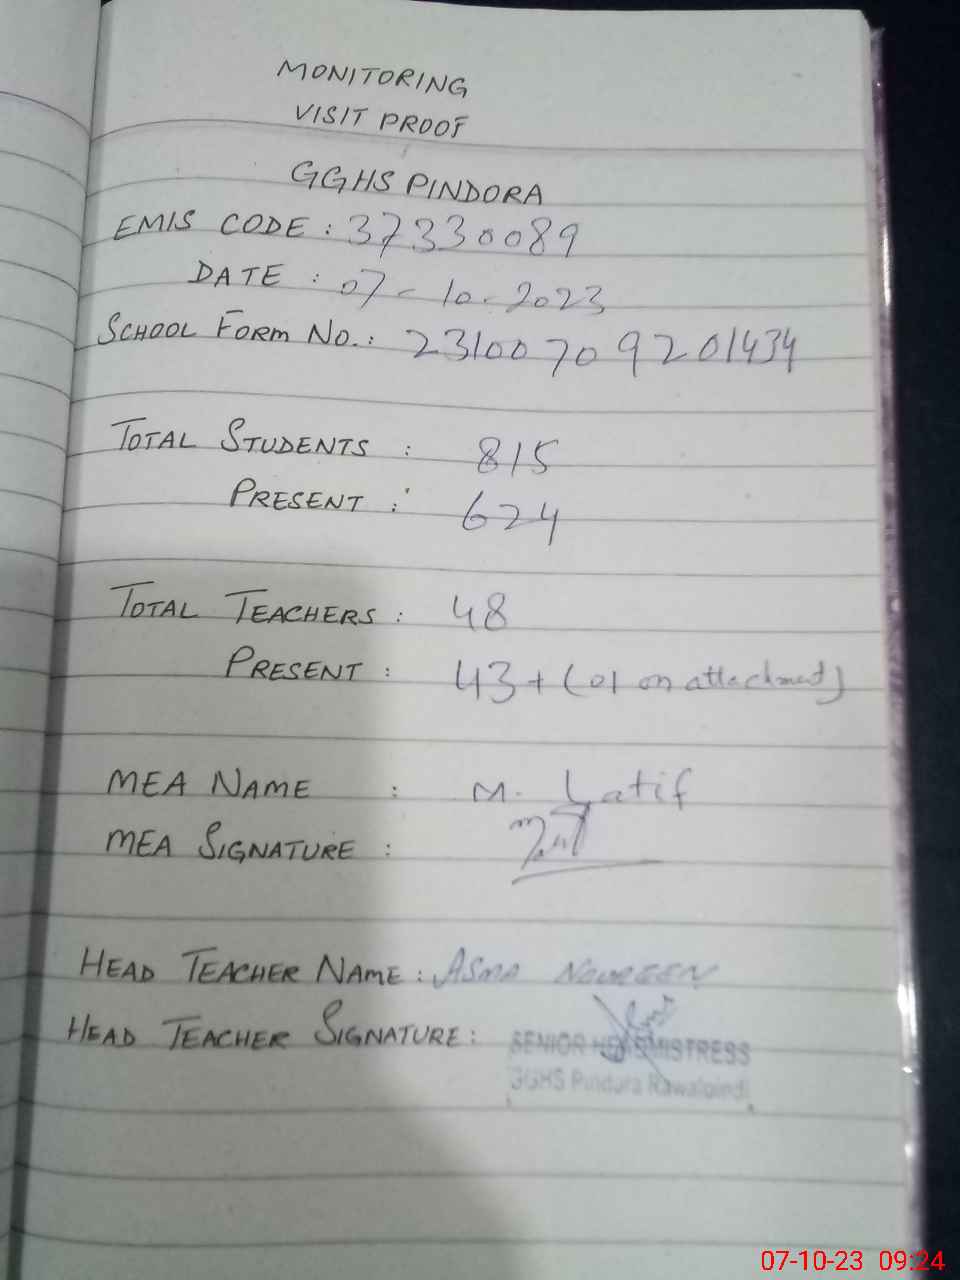 MONITORING
VISIT PROOF
GGHS PINDORA
EMIS CODE : 37330089
DATE : 07-10-2023
SCHOOL FORM NO.: 23100709201434
TOTAL STUDENTS : 815
PRESENT : 624
TOTAL TEACHERS : 48
PRESENT : 43 + (01 on attachment)
MEA NAME : M. Latif
MEA SIGNATURE :
HEAD TEACHER NAME : ASMA NOUREEN
HEAD TEACHER SIGNATURE :
SENIOR HEADMISTRESS
GGHS Pindora Rawalpindi
07-10-23 09:24